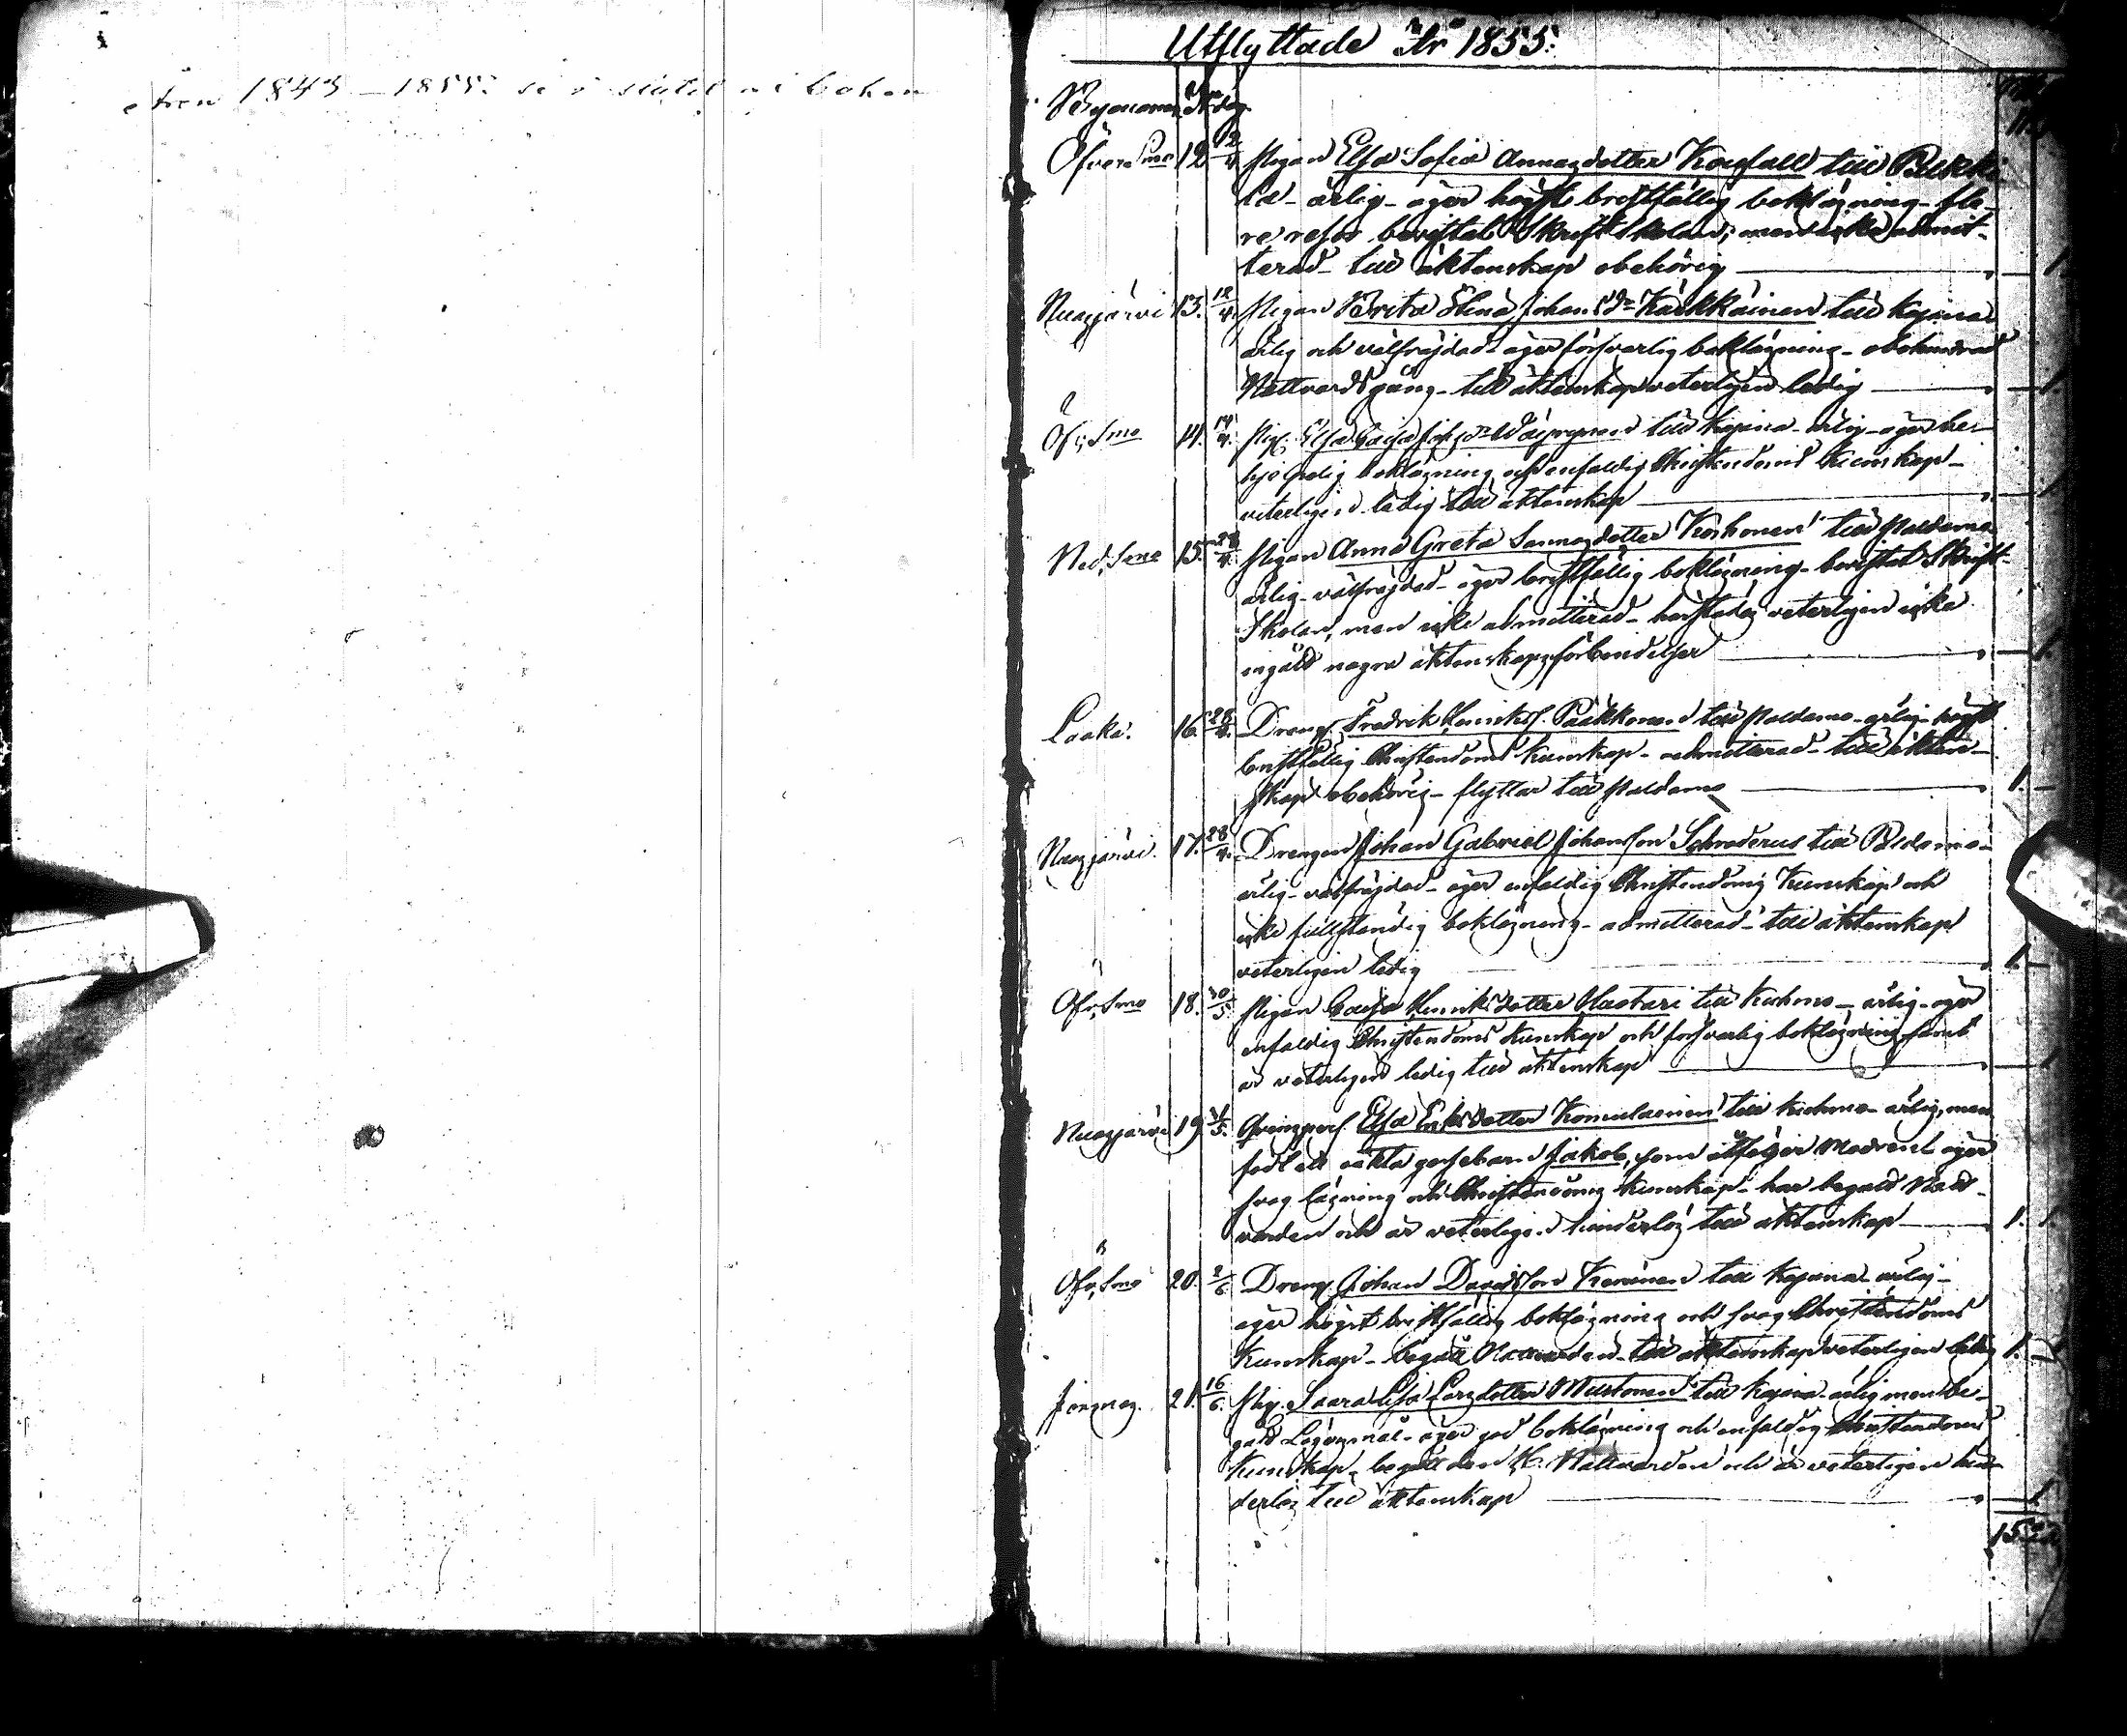 åren 1843 – 1855: se i slutet af boken
Utflyttade År 1855:
Bynamn No dag
Öfvere Smo 12. 12/4. Pigan Elsa Sofia Annasdotter Korfall till Pulkki-
la – ärlig – äger högst bristfällig bokläsning – fle-
re resor bevistat Skriftskolan, men icke admit-
terad – till äktenskap obehörig — 1.
Nuasjärvi 13. 12/4. Pigan Brita Stina Johansdr Karkkainen till Kajana
ärlig och välfräjdad – äger försvarlig bokläsning – obehindrad
Nattvardsgång – till äktenskap veterligen ledig — 1.
Öfv. Smo 14. 14/4. Pig. Elsa Caisa Johsdr Wäyrynen till Kajana – ärlig – äger be-
hjelpelig bokläsning och enfaldig Christendoms Kunskap –
veterligen ledig till äktenskap — 1.
Ned. Smo 15. 28/4. Pigan Anna Greta Sannasdotter Korhonen till Paldamo
ärlig – välfräjdad – äger bristfällig bokläsning – bevistat Skrift-
Skolan, men icke admitterad – härstädes veterligen icke
ingått några äktenskapsförbindelser — 1.
Laaka. 16. 28/4. Dreng. Fredrik Henriks. Pääkkonen till Paldamo – ärlig – högst
bristfällig Christendoms Kunskap – admitterad – till äkten-
skap obehörig – flyttar till Paldamo — 1. –
Nuasjärvi. 17. 28/4. Drengen Johan Gabriel Johansson Schroderus till Paldamo –
ärlig – välfräjdad – äger enfaldig Christendoms Kunskap och
icke fullständig bokläsning – admitterad – till äktenskap
veterligen ledig — 1. –
Öfv. Smo 18. 30/5. Pigan Caisa Henriksdotter Hastari till Kuhmo – ärlig – äger
enfaldig Christendoms Kunskap och försvarlig bokläsning samt
är veterligen ledig till äktenskap — 1
Nuasjärvi 19. 31/5. Qvinspers. Elsa Eriksdotter Komulainen till Kuhmo – ärlig, men
födt ett oäkta gossebarn Jakob, som åtföljer Modren – äger
svag läsning och Christendoms Kunskap – har begått Natt-
varden och är veterligen hinderlös till äktenskap — 1. 1.
Öfv. Smo 20. 2/6. Dreng. Johan Davidsson Keränen till Kajana – ärlig –
äger högst bristfällig bokläsning och svag Christendoms
Kunskap – begått Nattvarden – till äktenskap veterligen ledig 1. –
Jormas. 21. 16/6. Pig. Saara Lisa Larsdotter Mustonen till Kajana – ärlig men be-
gått Lägersmål – äger god bokläsning och enfaldig Christendoms
Kunskap – begått den H. Nattvarden och är veterligen hin-
derlös till äktenskap — 1.
15